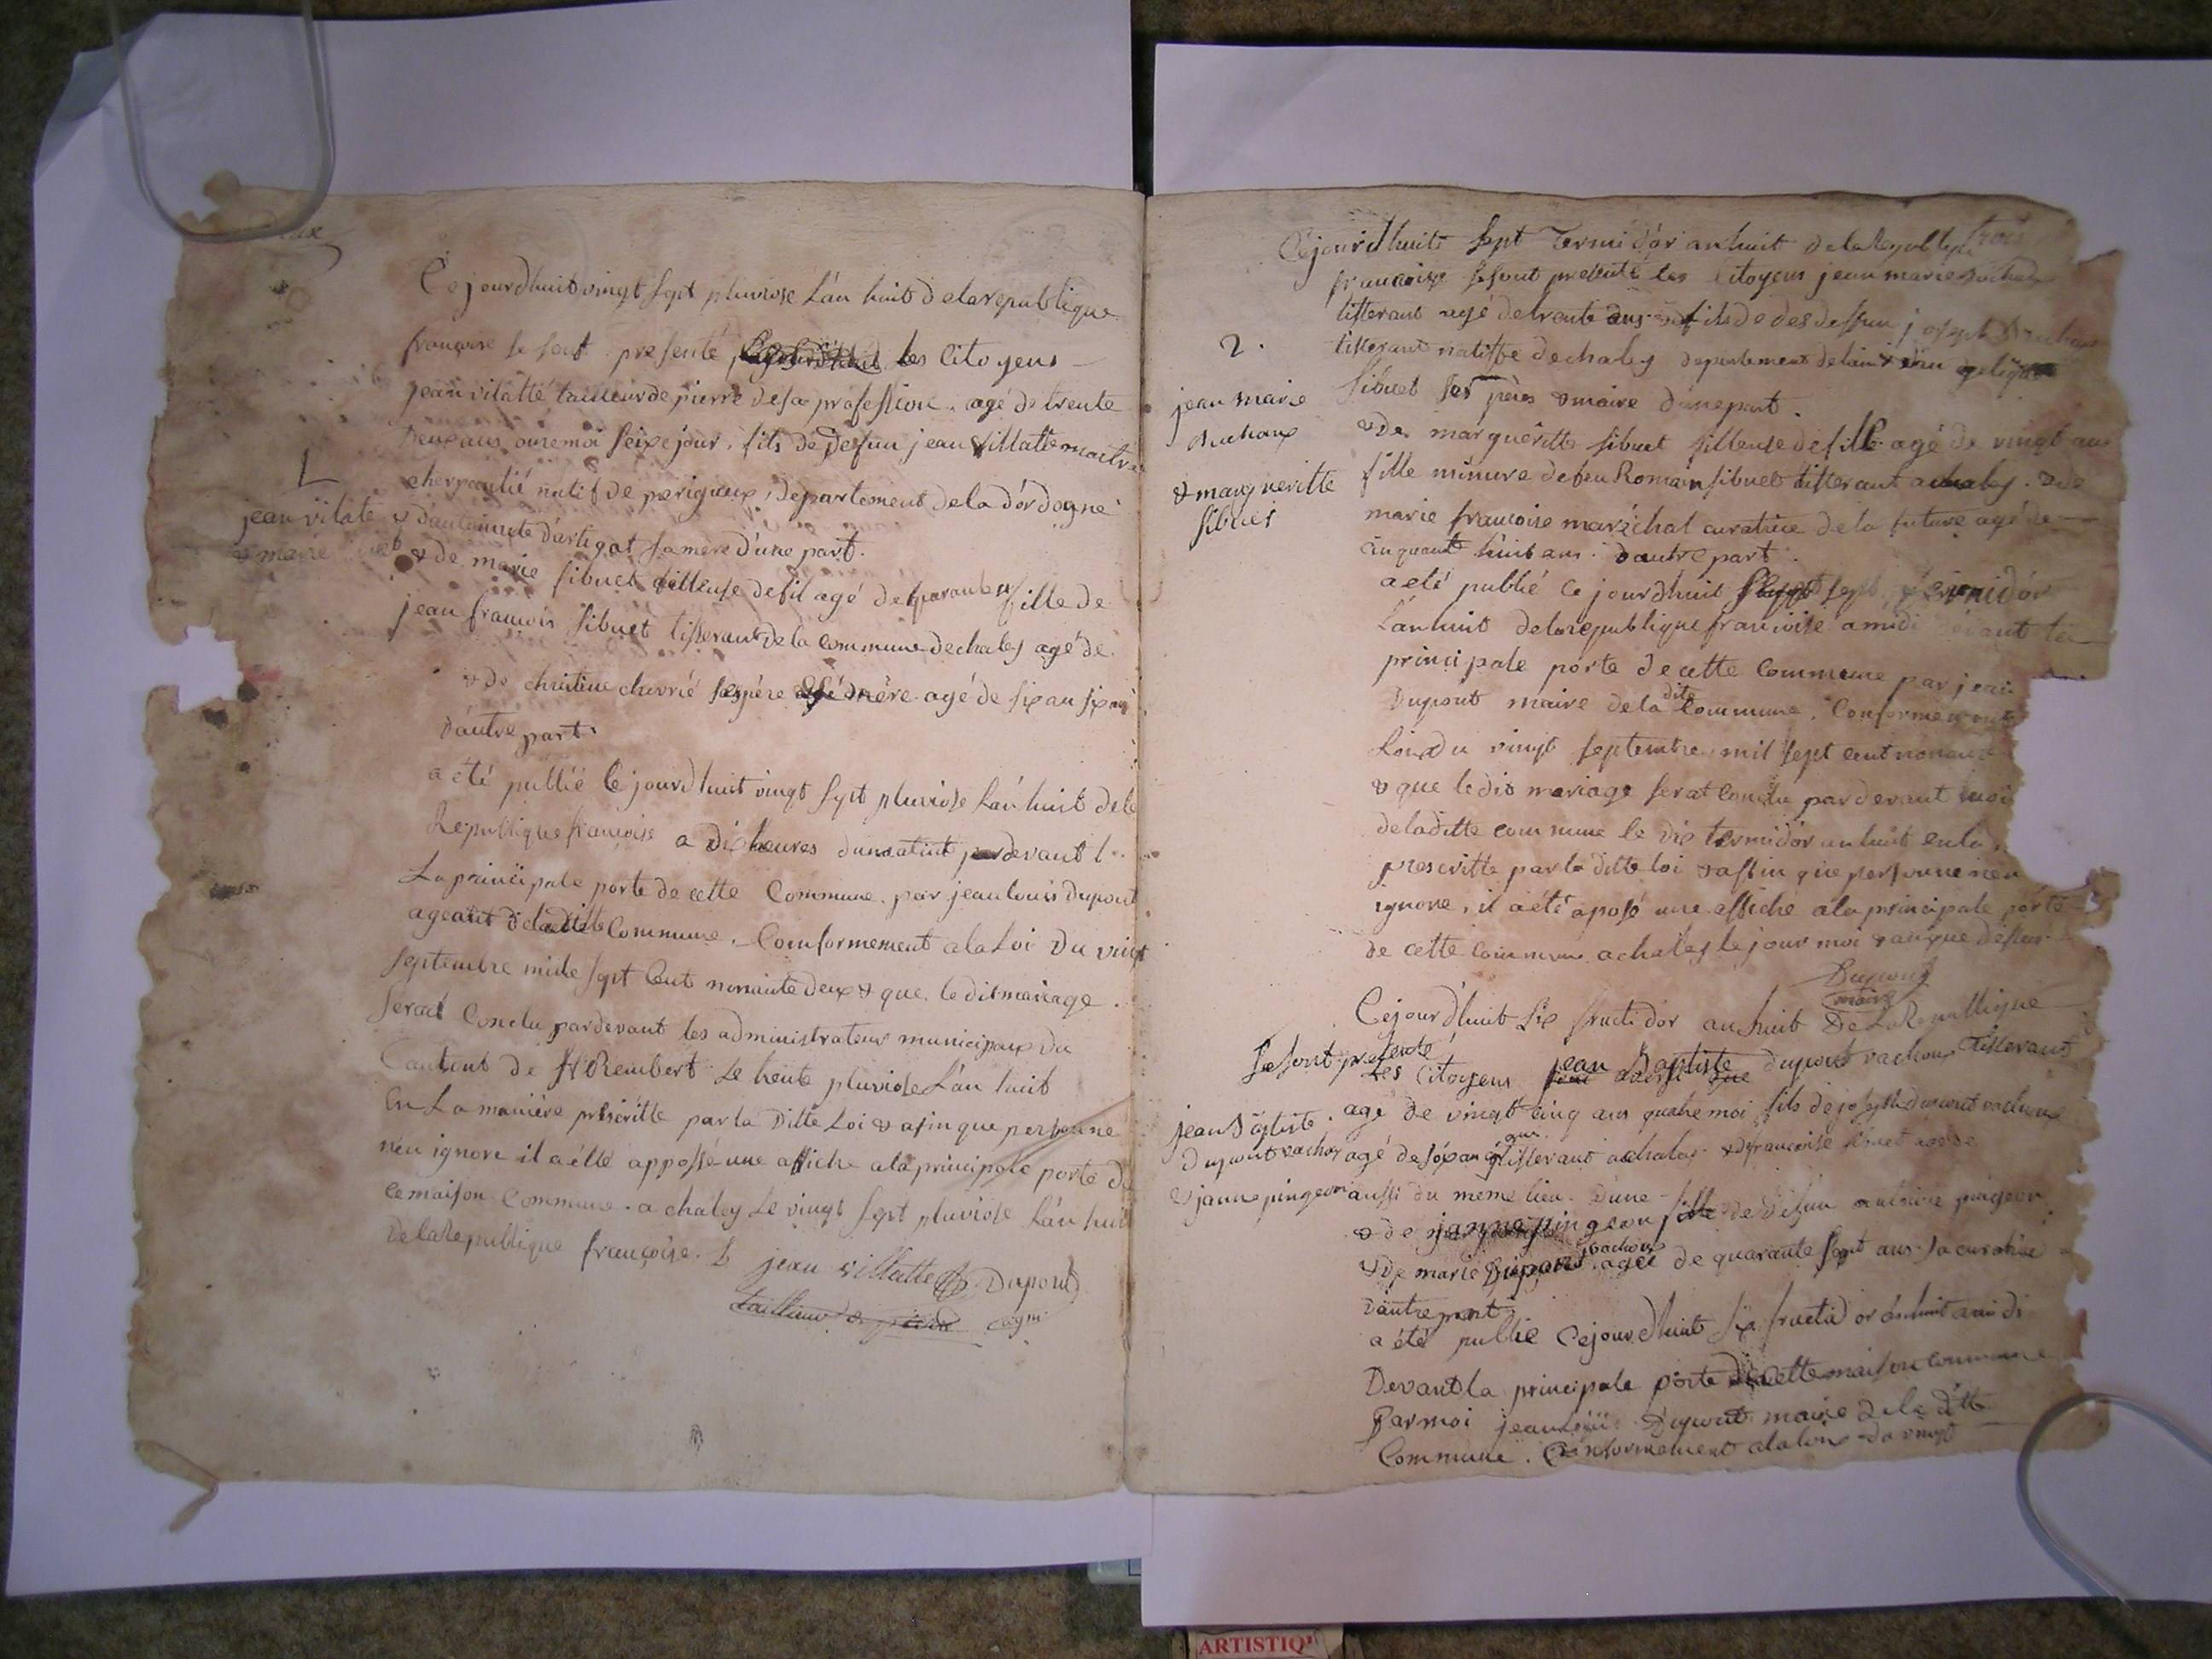 Ce jourdhuit vingt sept pluviose L'an huit dela republique
françoise se sont presenté les Citoyens
jean vilatte tailieur de pierre desa profession. agé de trente
deux ans onsemoi seixe jour. fils de defun jean villatte maitre
cherpantié natif de perigueux, departement dela dordogne
& d'antoinnete dartigat sa mere d'une part.
L
jean vilate
& marie
& de marie sibuet filleuse defil agé de quarante fille de
jean francois sibuet tisserant dela commune dechaley agé de
& de christine chevrié ses père mère agé de six an six
Dautre part.
a été publié Ce jourdhuit vingt sept pluviose L'an huit dela
Republique françoise a Dix heures dumatint pardevant l
La principale porte de cette Commune. par jean louis dupont
ageant deladitte Commune. Conformement ala Loi Du vingt
Septembre mille sept Cent nonante deux & que le dit mariage
Serat Conclu pardevant les administrateur municipaux Du
Cantont de St Rembert Le trente pluviose L'an huit
En La manière prescritte parla Ditte Loi & afin que personne
n'en ignore il a été apposse une affiche ala principale porte de
ce maison Commune. a chaley Le vingt sept pluviose L'an huit
Dela Republique françoise. jean villatte Dupont
tailleur de pierre agm
trois
Cejourdhuit sept Termidor an huit dela Republique
françoise se sont presenté les Citoyens jean marie
tisserant agé detrente ans fils de defun joseph
tisserant natif de chaley departement delain
sibuet ses pères & maire d'une part.
2.
jean marie
& margueritte
sibuet
& De margueritte sibuet filleuse defille agé de vingt ans
fille minure defeu Romain sibuet tisserant a chaley. & de
marie francoise maréchal curatrice dela future agé de
cinquant huit ans. Dautre part.
a été publié Ce jourdhuit sept termidor
L'an huit dela republique francoise a midi devant la
principale porte de cette Commune par jean
Dupont maire dela dite Commune. Conformement
Loix du vingt septembre mil sept cent nonante
& que ledit mariage serat Conclu par devant moi
deladitte commune le dix termidor an huit en la
prescritte par la ditte loi & affin que personne n'en
ignore, il a été aposé une affiche a la principale porte
de cette commune a chaley le jour moi & an que dessus
Dupont
maire
Cejourd'huit Six fructidor an huit De La Republique
Se sont presenté
Les Citoyens jean Baptiste dupont vachon Tisserant
agé de vingt cinq ans quatre moi fils de joseph dupont vachon
jean Baptiste
dupont vachon
& janne pingeon
agé de tisserant a chaley & francoise sibuet
aussi du meme lieu. D'une
& de janne pingeon fille de defun antoine pingeon
& De marie Dupont vachon agée de quarante sept ans sa curatrice
Dautre part
a été publié Cejourdhuit Six fructidor an huit a midi
Devant la principale porte de cette maison commune
Par moi jean Louis Dupont maire dela ditte
Commune. Conformement ala loix du vingt
ARTISTIQ